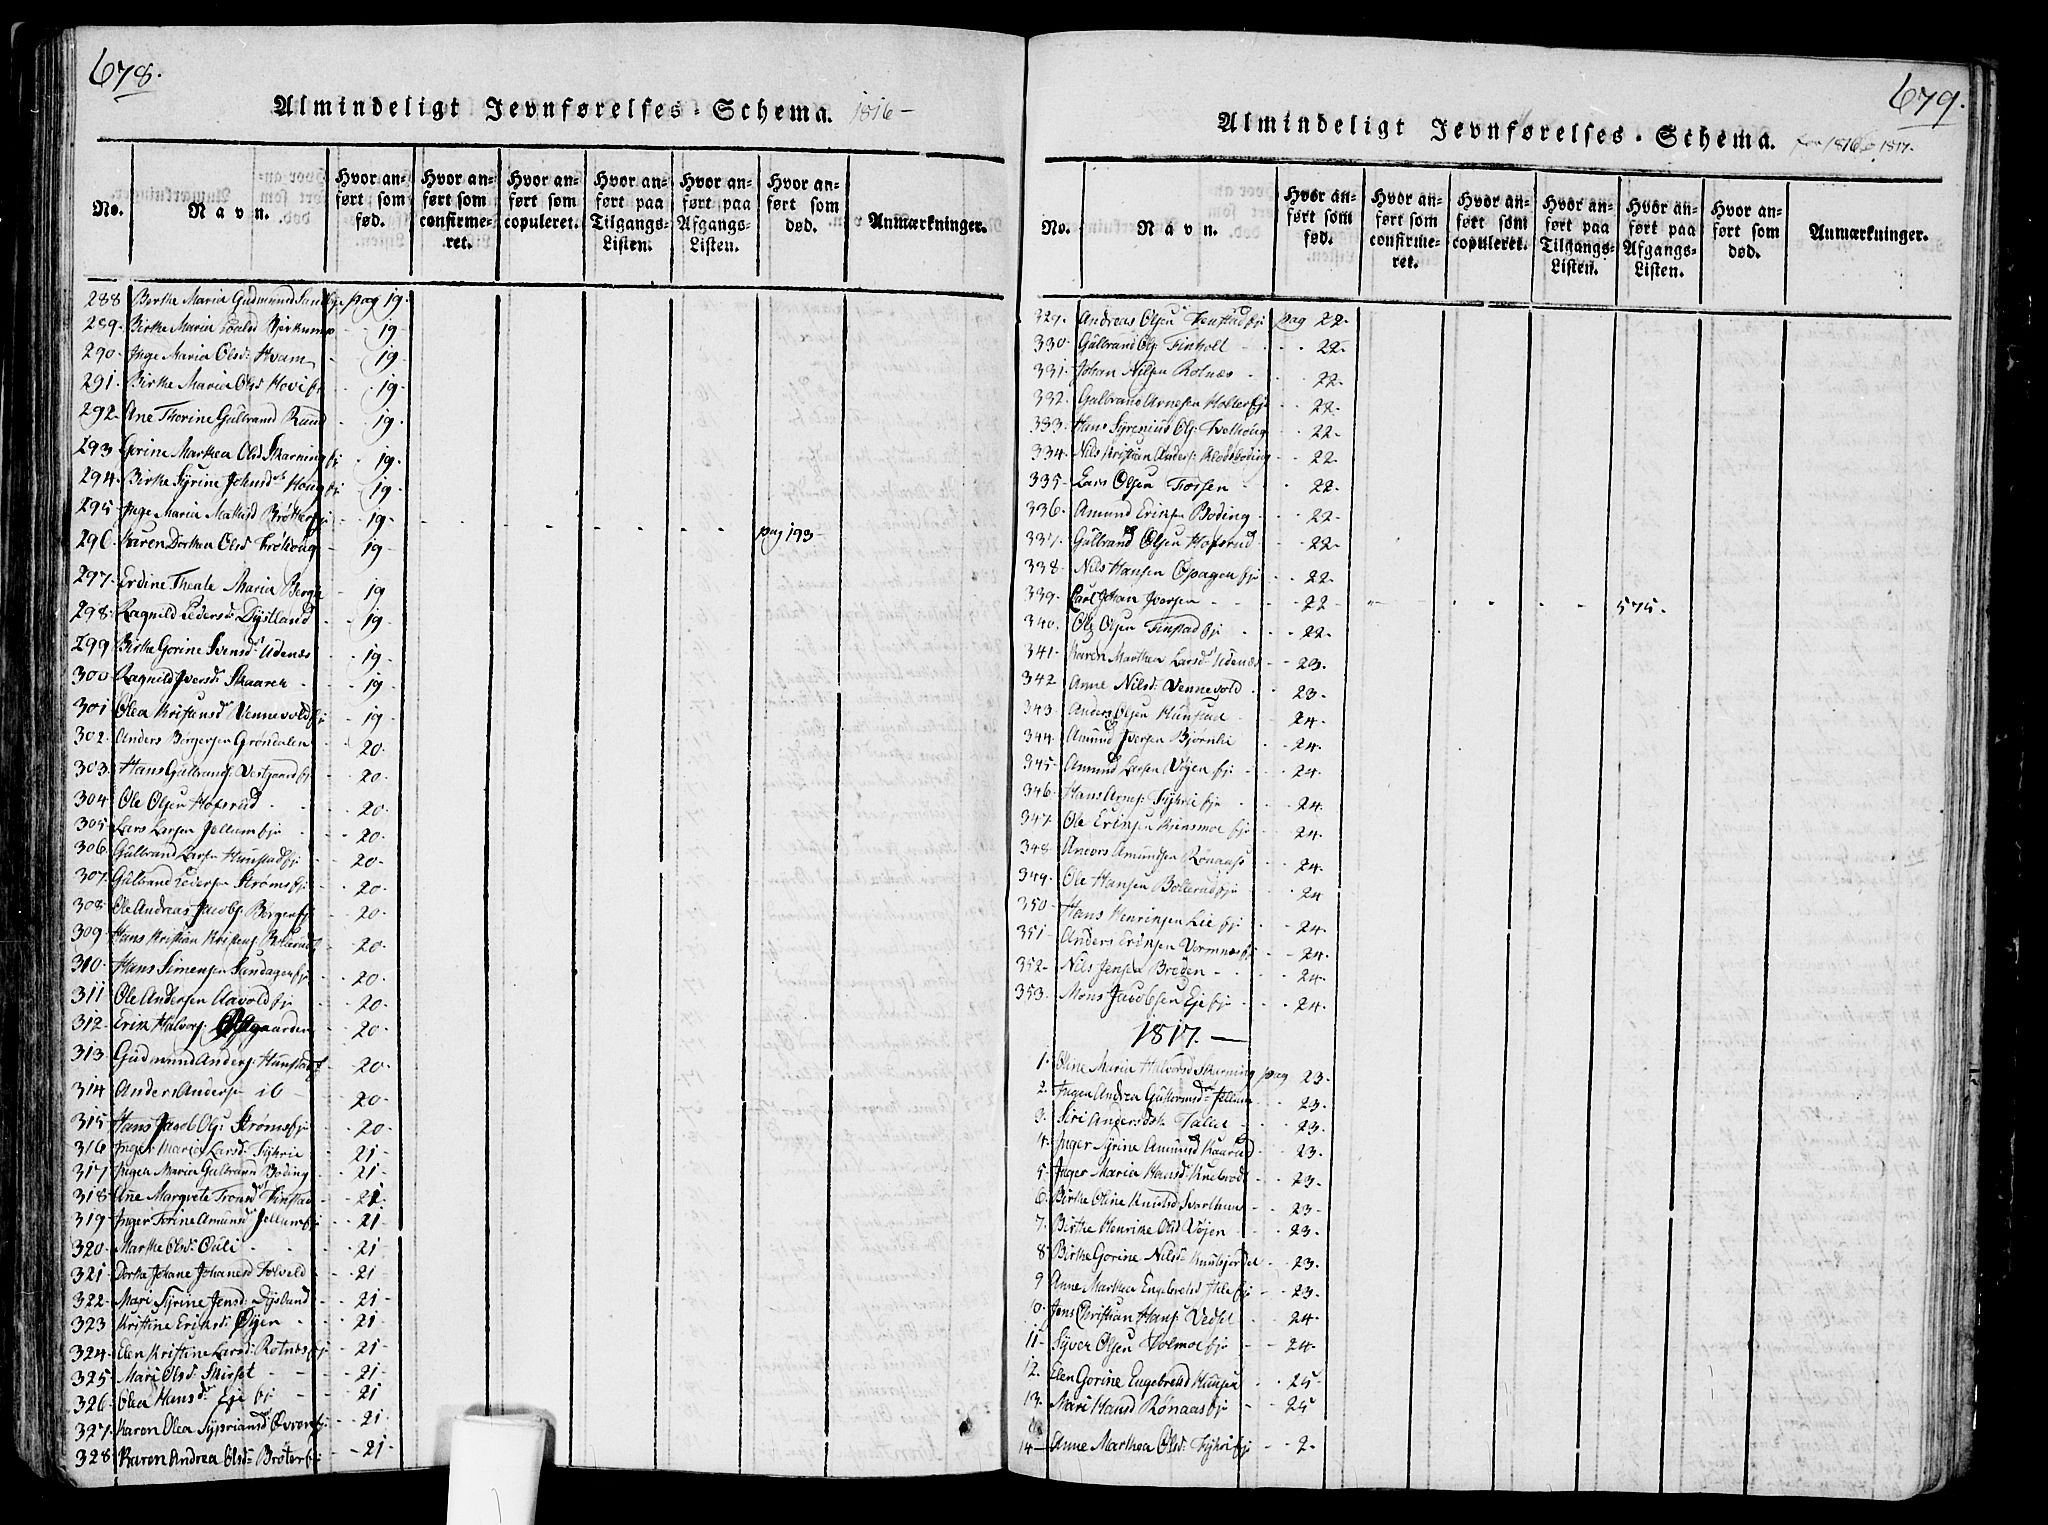 678.
Almindeligt Jevnførelses-Schema. 1816 –
No.
Navn.
Hvor anført som fød.
Hvor anført som confirmeret.
Hvor anført som copuleret.
Hvor anført paa Tilgangs-Listen.
Hvor anført paa Afgangs-Listen.
Hvor anført som død.
Anmærkninger.
288 Birthe Maria Gudmund pag 19.
289. Birthe Maria - 19
290. Inge Maria Olsd: Hvam 19
291. Birthe Maria Olsd Hovi - 19
292. Ane Thorine Gulbrand Ruud - 19
293 Gorine Marthea Olsd Skarning - 19
294. Birthe Syrine Johnsd Houg - 19
295. Inge Maria Mathisd Brøther - 19 - - - - - pag 193 -
296. Karen Dorthea Olsd - 19
297. Erdine Theale Maria Berge - 19
298. Ragnild Pedersd: Dystland - 19
299 Birthe Gorine Svensd: Udenæs - 19
300 Ragnild Iversd: Skaarer - 19
301 Olea Kristensd Vennevold - 19
302. Anders Børgersen Grøndalen 20.
303. Hans Gulbrands: Vestgaard 20.
304 Ole Olsen Hofsrud - 20
305. Lars Larsen Jellum - 20.
306. Gulbrand Larsen Hunstad - 20.
307. Gulbrand Pedersen Strøms - 20.
308. Ole Andreas Jacobs: Børgen - 20.
309. Hans Kristian Kristens: Bollerud 20.
310. Hans Simensen Sundagen - 20.
311 Ole Andersen Aavold - 20.
312. Erik Halvors: Østgaarden 20.
313. Gudmund Anders: Hunstad 20.
314 Anders Andersen - 20.
315. Hans Jacob Ols: Strøms - 20
316 Inger Maria Larsd: Fyhrie - 21 -
317. Ingea Maria Gulbrand Boding - 21.
318. Ane Margrete Tronsd Finstad - 21
319. Inger Torine Amunds Jellum - 21.
320. Marthe Olsd: Ouli - 21
321 Dorthe Johane Johanesd Solveld - 21
322. Mari Syrine Jensd: Dysland - 21 -
323 Kristine Eriksd: Øyen - 21
324. Elen Kristine Larsd: Rotnæs - 21 -
325 Mari Olsd: Skirset - 21
326 Olea Hansd: Eje - 21
327. Karen Olea Sypriansd Øveren - 21.
328 Karen Andrea Olsd: Brøter - 21 -
679.
Almindeligt Jevnførelses-Schema. for 1816 1817.
No.
Navn.
Hvor anført som fød.
Hvor anført som confirmeret.
Hvor anført som copuleret.
Hvor anført paa Tilgangs-Listen.
Hvor anført paa Afgangs-Listen.
Hvor anført som død.
Anmærkninger.
329. Andreas Olsen Finstad pag 22.
330 Gulbrand Ols: Finholt - 22.
331. Johan Nilsen Rotnæs - 22.
332. Gulbrand Arnesen Holter - 22.
333 Hans Syrenius Ols: - 22.
334. Nils Kristian Anders: - 22.
335- Lars Olsen Fossen - 22.
336. Amund Eriks Boding - 22.
337. Gulbrand Olsen Hofsrud - 22.
338. Nils Hansen Opagen - 22.
339. Carl Johan Iversen - 22 - - - - 575.
340. Ole Olsen Finstad - 22.
341. Karen Marthea Larsd: Udenæs - 23.
342 Anne Nilsd: Vennevold - 23.
343 Anders Olsen Hunstad - 24.
344. Amund Iversen Bjørnli - 24.
345. Amund Larsen Vøyen - 24.
346. Hans Arnes: Fyhrie - 24.
347. Ole Eriksen Kjensmoe - 24.
348. Anders Amundsen Rønaas - 24.
349. Ole Hansen Bollerud - 24
350 Hans Henriksen Lie - 24.
351 Anders Eriksen Vormnæs - 24.
352. Nils Jensen Breden - 24
353. Mons Jacobsen Eje - 24.
1817. –
1. Oline Maria Halvorsd Skarning pag 23.
2. Ingea Andrea Guttormsd: Jellum 23.
3. Siri Andersdtr - 23.
4. Inger Syrine Amunds Kaurud - 23.
5. Inger Maria Hansd: - 23.
6. Birthe Oline Knutsd: - 23.
7. Birthe Henrike Olsd Vøjen - 23.
8. Birthe Gorine Nilsd: - 23.
9 Anne Marthea Engebretsd - 23.
10. Jens Christian Hans: - 24.
11. Syver Olsen Solmoe - 24.
12. Elen Gorine Engebretsd - 25
13. Mari Hansd Rønaas - 25
14 - Anne Marthea Olsd: Fyhri - 2.